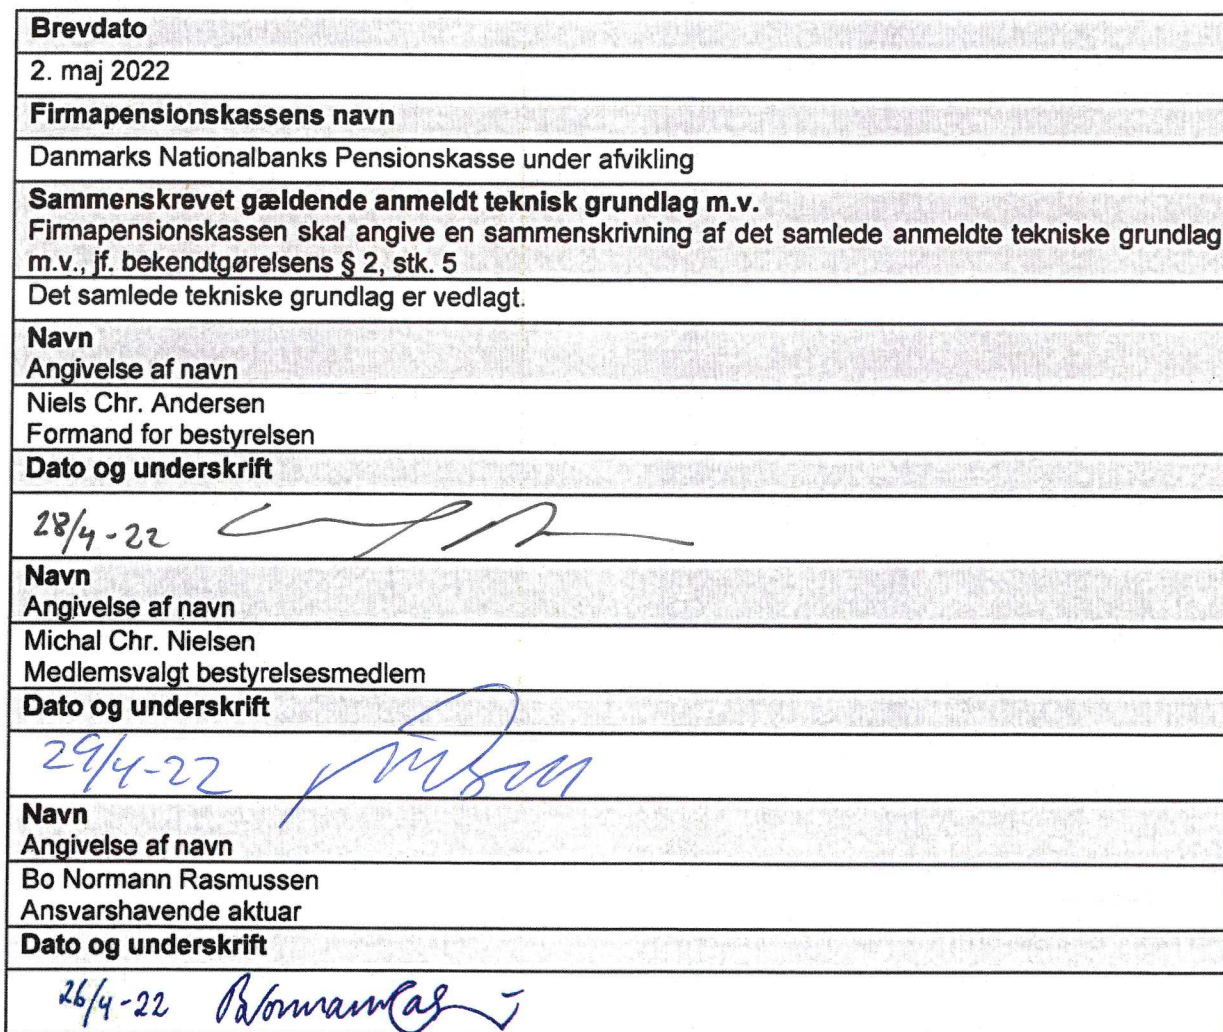 Brevdato
2. maj 2022
Firmapensionskassens navn
Danmarks Nationalbanks Pensionskasse under afvikling
Sammenskrevet gældende anmeldt teknisk grundlag m.v.
Firmapensionskassen skal angive en sammenskrivning af det samlede anmeldte tekniske grundlag
m.v., jf. bekendtgørelsens § 2, stk. 5
Det samlede tekniske grundlag er vedlagt.
Navn
Angivelse af navn
Niels Chr. Andersen
Formand for bestyrelsen
Dato og underskrift
28/4-22
Navn
Angivelse af navn
Michal Chr. Nielsen
Medlemsvalgt bestyrelsesmedlem
Dato og underskrift
29/4-22
Navn
Angivelse af navn
Bo Normann Rasmussen
Ansvarshavende aktuar
Dato og underskrift
26/4-22